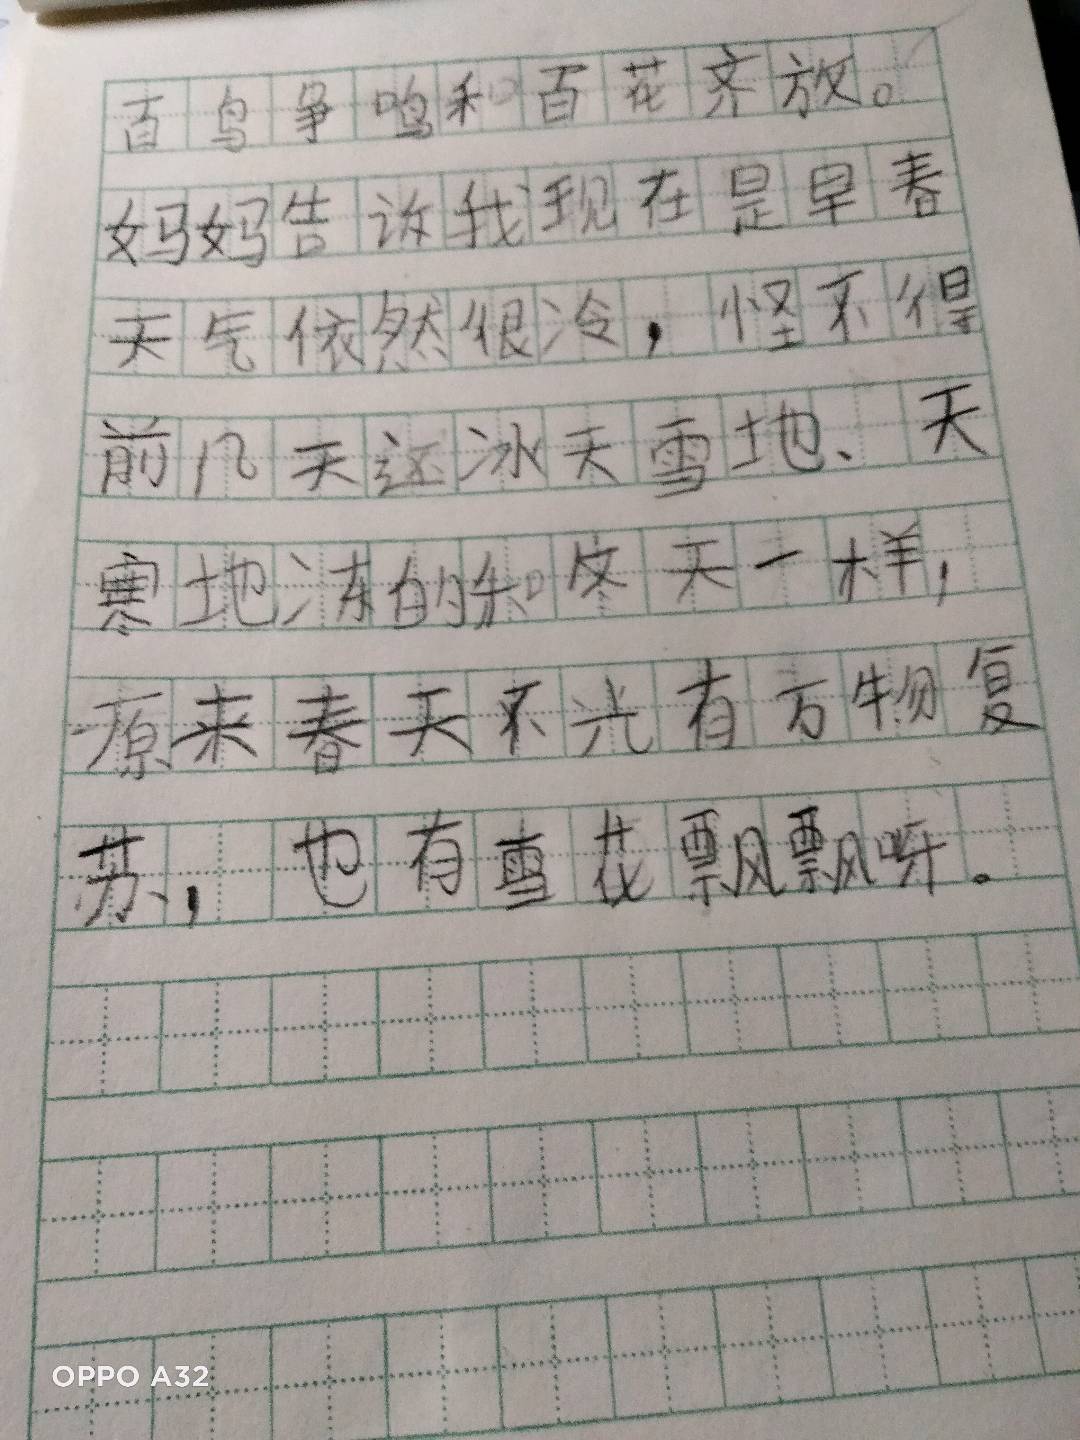 百鸟争鸣和百花齐放。
妈妈告诉我现在是早春
天气依然很冷，怪不得
前几天还冰天雪地、天
寒地冻的和冬天一样，
原来春天不光有万物复
苏，也有雪花飘飘呀。
OPPO A32